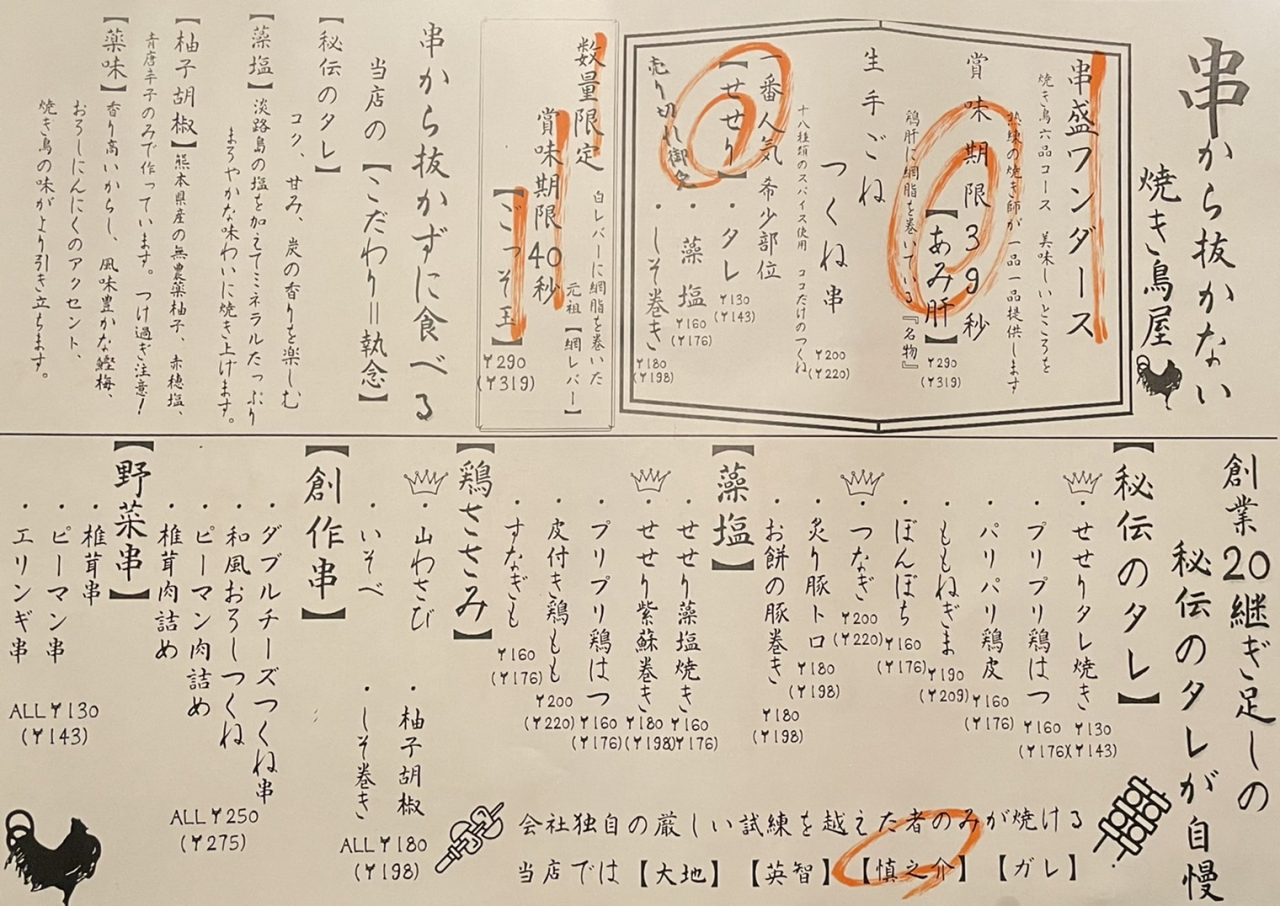 串から抜かない
焼き鳥屋
串盛ワンダース
焼き鳥六品コース 美味しいところを
熟練の焼き師が一品一品提供します
賞味期限39秒
【あみ肝】
¥290
(¥319)
鶏肝に網脂を巻いている『名物』
生手ごね
つくね串
¥200
(¥220)
十八種類のスパイス使用 ココだけのつくね
一番人気 希少部位
【せせり】
・タレ
¥130
(¥143)
・藻塩
¥160
(¥176)
・しそ巻き
¥180
(¥198)
売り切れ御免
数量限定
白レバーに網脂を巻いた
元祖【網レバー】
賞味期限40秒
【ごっそ玉】
¥290
(¥319)
串から抜かずに食べる
当店の【こだわり=執念】
【秘伝のタレ】
コク、甘み、炭の香りを楽しむ
【藻塩】淡路島の塩を加えてミネラルたっぷり
まろやかな味わいに焼き上げます。
【柚子胡椒】熊本県産の無農薬柚子、赤穂塩、
青唐辛子のみで作っています。つけ過ぎ注意!
【薬味】香り高いからし、風味豊かな鰹梅、
おろしにんにくのアクセント、
焼き鳥の味がより引き立ちます。
創業20継ぎ足しの
秘伝のタレが自慢
【秘伝のタレ】
・せせりタレ焼き
¥130
(¥143)
・プリプリ鶏はつ
¥160
(¥176)
・パリパリ鶏皮
¥160
(¥176)
・ももねぎま
¥190
(¥209)
・ぼんぼち
¥160
(¥176)
・つなぎ
¥200
(¥220)
・炙り豚トロ
¥180
(¥198)
・お餅の豚巻き
¥180
(¥198)
【藻塩】
・せせり藻塩焼き
¥160
(¥176)
・せせり紫蘇巻き
¥180
(¥198)
・プリプリ鶏はつ
¥160
(¥176)
・皮付き鶏もも
¥200
(¥220)
・すなぎも
¥160
(¥176)
【鶏ささみ】
・山わさび
・柚子胡椒
・いそべ
・しそ巻き
ALL¥180
(¥198)
【創作串】
・ダブルチーズつくね串
・和風おろしつくね
・ピーマン肉詰め
・椎茸肉詰め
ALL¥250
(¥275)
【野菜串】
・椎茸串
・ピーマン串
・エリンギ串
ALL¥130
(¥143)
会社独自の厳しい試練を越えた者のみが焼ける
当店では【大地】【英智】【慎之介】【ガレ】